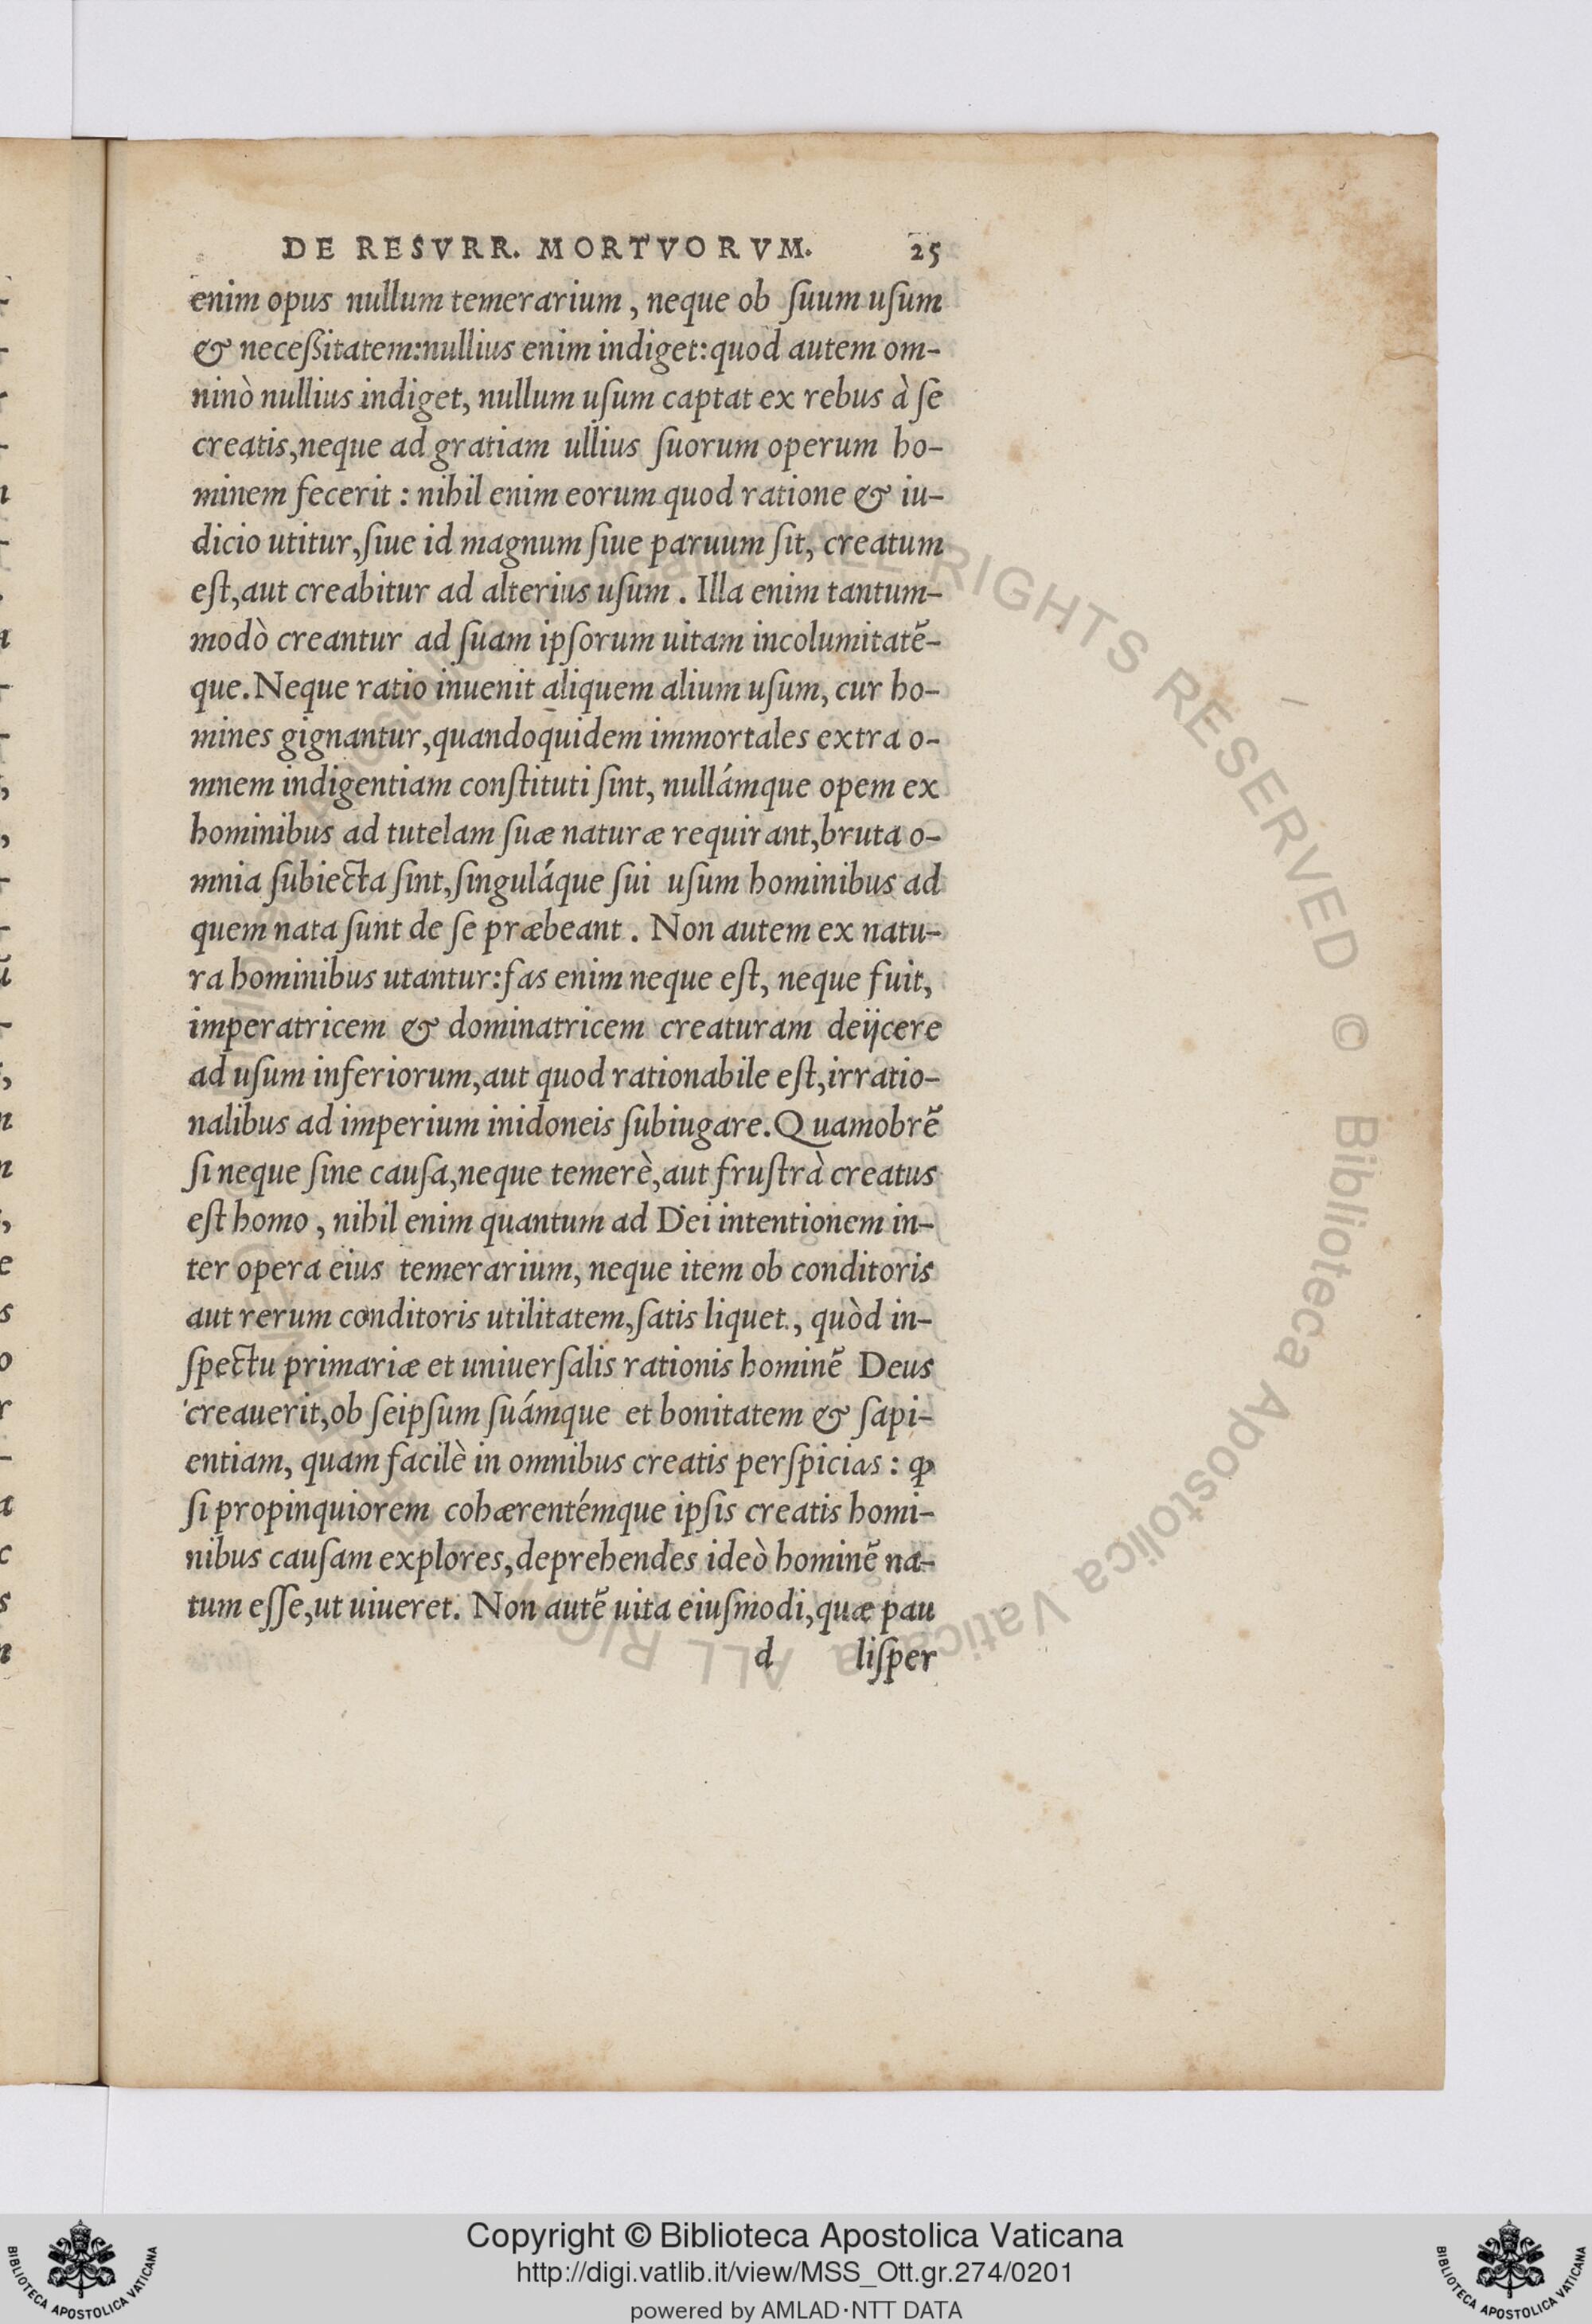 DE RESVRR. MORTVORVM. 25
enim opus nullum temerarium, neque ob ſuum uſum
& neceßitatem:nullius enim indiget:quod autem om-
ninò nullius indiget, nullum uſum captat ex rebus à ſe
creatis,neque ad gratiam ullius ſuorum operum ho-
minem fecerit : nihil enim eorum quod ratione & iu-
dicio utitur,ſiue id magnum ſiue paruum ſit, creatum
eſt,aut creabitur ad alterius uſum. Illa enim tantum-
modò creantur ad ſuam ipſorum uitam incolumitatẽ-
que.Neque ratio inuenit aliquem alium uſum, cur ho-
mines gignantur,quandoquidem immortales extra o-
mnem indigentiam conſtituti ſint, nullámque opem ex
hominibus ad tutelam ſuæ naturæ requirant,bruta o-
mnia ſubiecta ſint,ſinguláque ſui uſum hominibus ad
quem nata ſunt de ſe præbeant. Non autem ex natu-
ra hominibus utantur:fas enim neque eſt, neque fuit,
imperatricem & dominatricem creaturam deijcere
ad uſum inferiorum,aut quod rationabile eſt,irratio-
nalibus ad imperium inidoneis ſubiugare.Quamobrẽ
ſi neque ſine cauſa,neque temerè,aut fruſtrà creatus
eſt homo, nihil enim quantum ad Dei intentionem in-
ter opera eius temerarium, neque item ob conditoris
aut rerum conditoris utilitatem,ſatis liquet, quòd in-
ſpectu primariæ et uniuerſalis rationis hominẽ Deus
creauerit,ob ſeipſum ſuámque et bonitatem & ſapi-
entiam, quam facilè in omnibus creatis perſpicias : ꝙ
ſi propinquiorem cohærentémque ipſis creatis homi-
nibus cauſam explores,deprehendes ideò hominẽ na-
tum eſſe,ut uiueret. Non autẽ uita eiuſmodi,quæ pau
d liſper
Copyright © Biblioteca Apostolica Vaticana
http://digi.vatlib.it/view/MSS_Ott.gr.274/0201
powered by AMLAD·NTT DATA
BIBLIOTECA APOSTOLICA VATICANA
BIBLIOTECA APOSTOLICA VATICANA
ALL RIGHTS RESERVED © Biblioteca Apostolica Vaticana